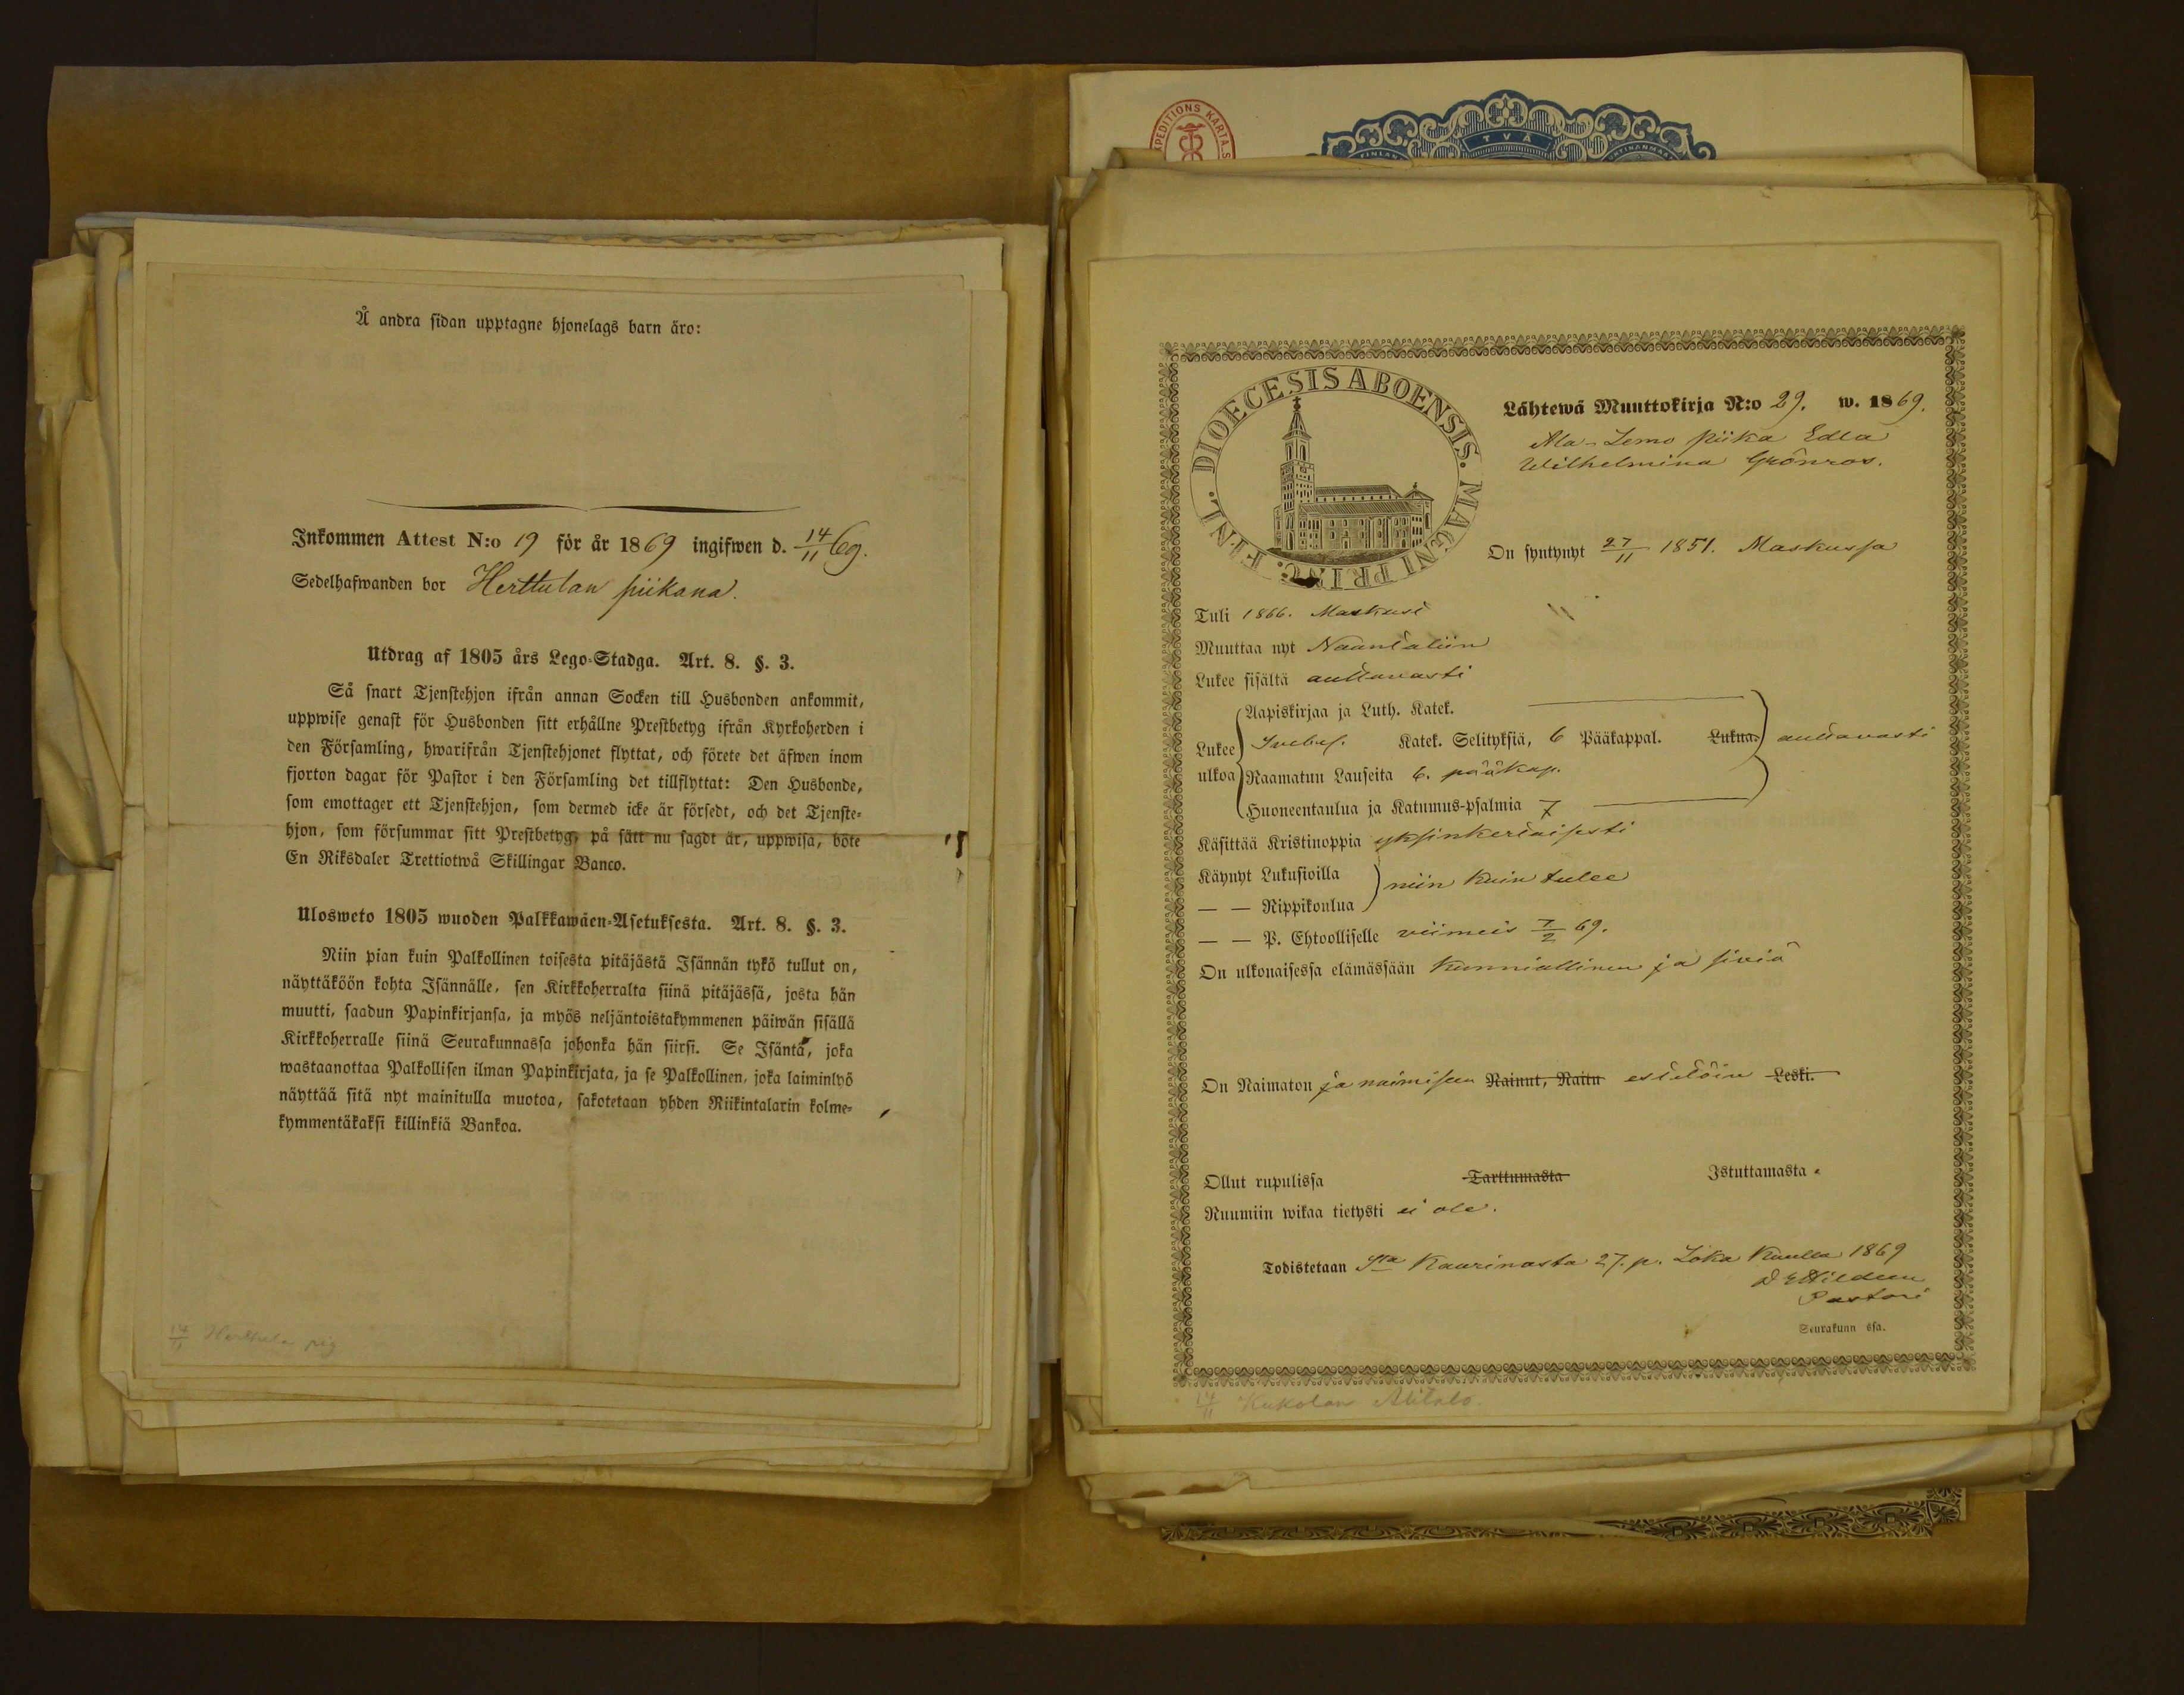 Å andra sidan upptagne hjonelags barn äro:
Inkommen Attest N:o 19 för år 1869 ingifwen d. 14/11 69.
Sedelhafwanden bor Herttulan piikana.
Utdrag af 1805 års Lego-Stadga. Art. 8. §. 3.
Så snart Tjenstehjon ifrån annan Socken till Husbonden ankommit,
uppwise genast för Husbonden sitt erhållne Prestbetyg ifrån Kyrkoherden i
den Församling, hwarifrån Tjenstehjonet flyttat, och förete det äfwen inom
fjorton dagar för Pastor i den Församling det tillflyttat: Den Husbonde,
som emottager ett Tjenstehjon, som dermed icke är försedt, och det Tjenste-
hjon, som försummar sitt Prestbetyg, på sätt nu sagdt är, uppwisa, böte
En Riksdaler Trettiotwå Skillingar Banco.
Ulosweto 1805 wuoden Palkkawäen-Asetuksesta. Art. 8. §. 3.
Niin pian kuin Palkollinen toisesta pitäjästä Isännän tykö tullut on,
näyttäköön kohta Isännälle, sen Kirkkoherralta siinä pitäjässä, josta hän
muutti, saadun Papinkirjansa, ja myös neljäntoistakymmenen päiwän sisällä
Kirkkoherralle siinä Seurakunnassa johonka hän siirsi. Se Isäntä, joka
wastaanottaa Palkollisen ilman Papinkirjata, ja se Palkollinen, joka laiminlyö
näyttää sitä nyt mainitulla muotoa, sakotetaan yhden Riikintalarin kolme-
kymmentäkaksi killinkiä Bankoa.
14/11 Herttula pig
EXPEDITIONS KARTA. S
TVÅ
DIOECESIS ABOENSIS. MAGNI PRINC. FINL.
Lähtewä Muuttokirja N:o 29. w. 1869.
Ala-Lemo piika Edla
Wilhelmina Grönros.
On syntynyt 27/11 1851. Maskussa
Tuli 1866. Maskusi
Muuttaa nyt Naantaliin
Lukee sisältä auttavasti
Aapiskirjaa ja Luth. Katek.
Lukee ulkoa Svebel. Katek. Selityksiä, 6 Pääkappal. Lukua. auttavasti
Raamatun Lauseita 6. pääkap.
Huoneentaulua ja Katumus-psalmia 7
Käsittää Kristinoppia yksinkertaisesti
Käynyt Lukusioilla
— — Rippikoulua niin kuin tulee
— — P. Ehtoolliselle viimeis 7/2 69.
On ulkonaisessa elämässään kunniallinen ja siviä
On Naimaton ja naimiseen Nainut, Naitu estetöin Leski.
Ollut rupulissa Tarttumasta Istuttamasta.
Ruumiin wikaa tietysti ei ole.
Todistetaan Sta Kaarinasta 27. p. Loka Kuulla 1869
Pastori
Seurakunn ssa.
14/11 Kukolan Alitalo.